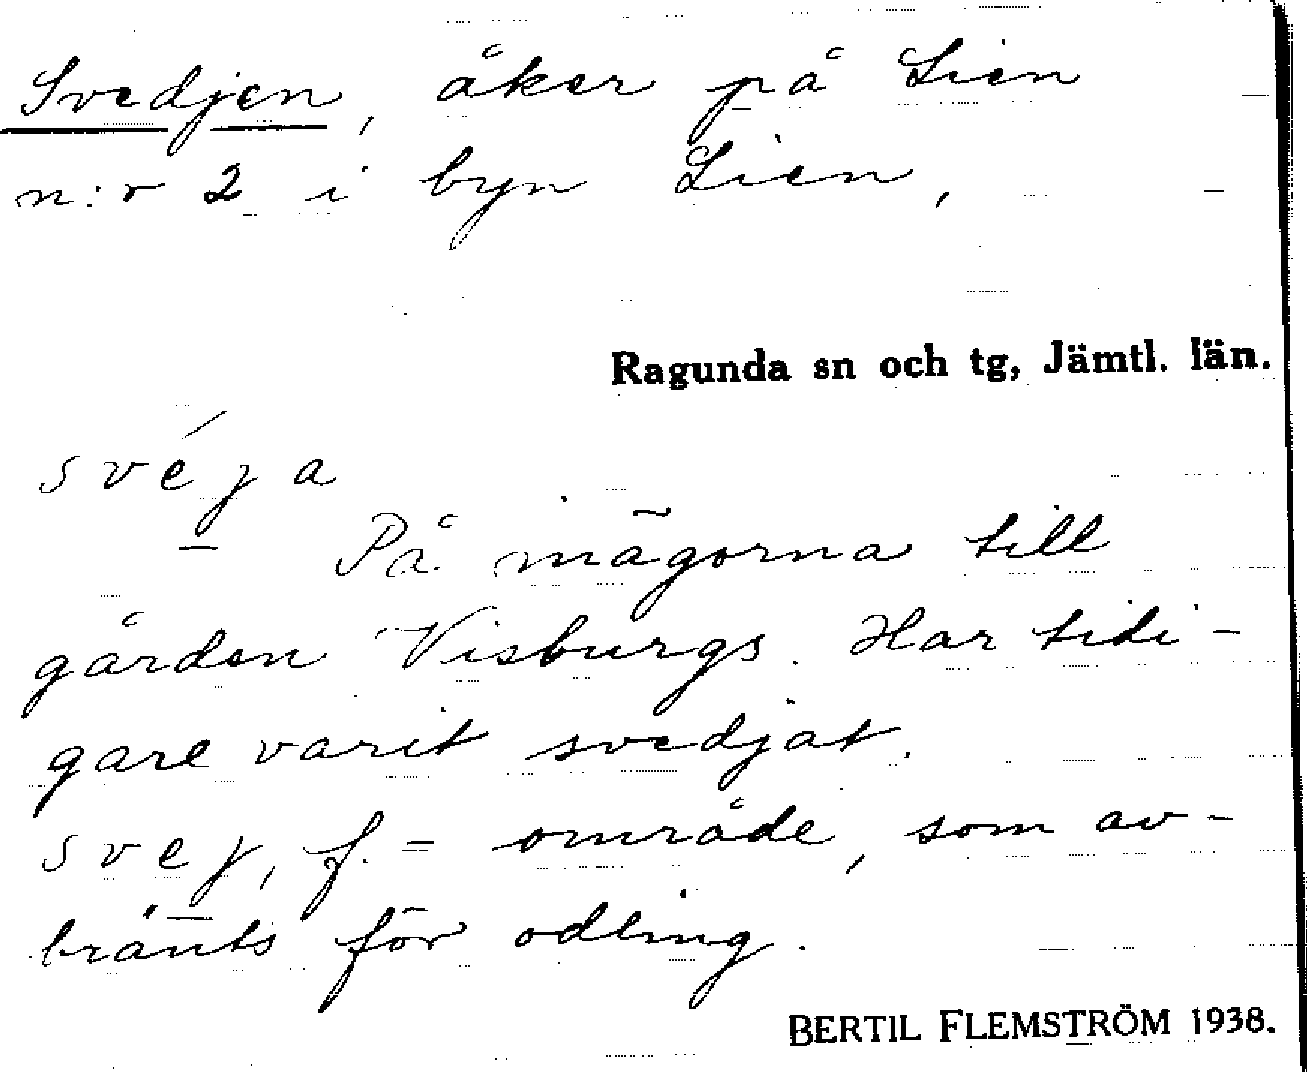 Svedjen, åker på Lien
n:r 2 i byn Lien,
Ragunda sn och tg, Jämtl. län.
svéja
På mägorna till
gården Visburgs. Har tidi-
gare varit svedjat.
svej, f. = område, som av-
bränts för odling.
BERTIL FLEMSTRÖM 1938.